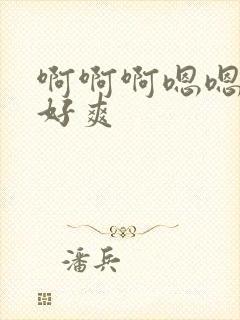 啊啊啊嗯嗯
好爽
潘兵